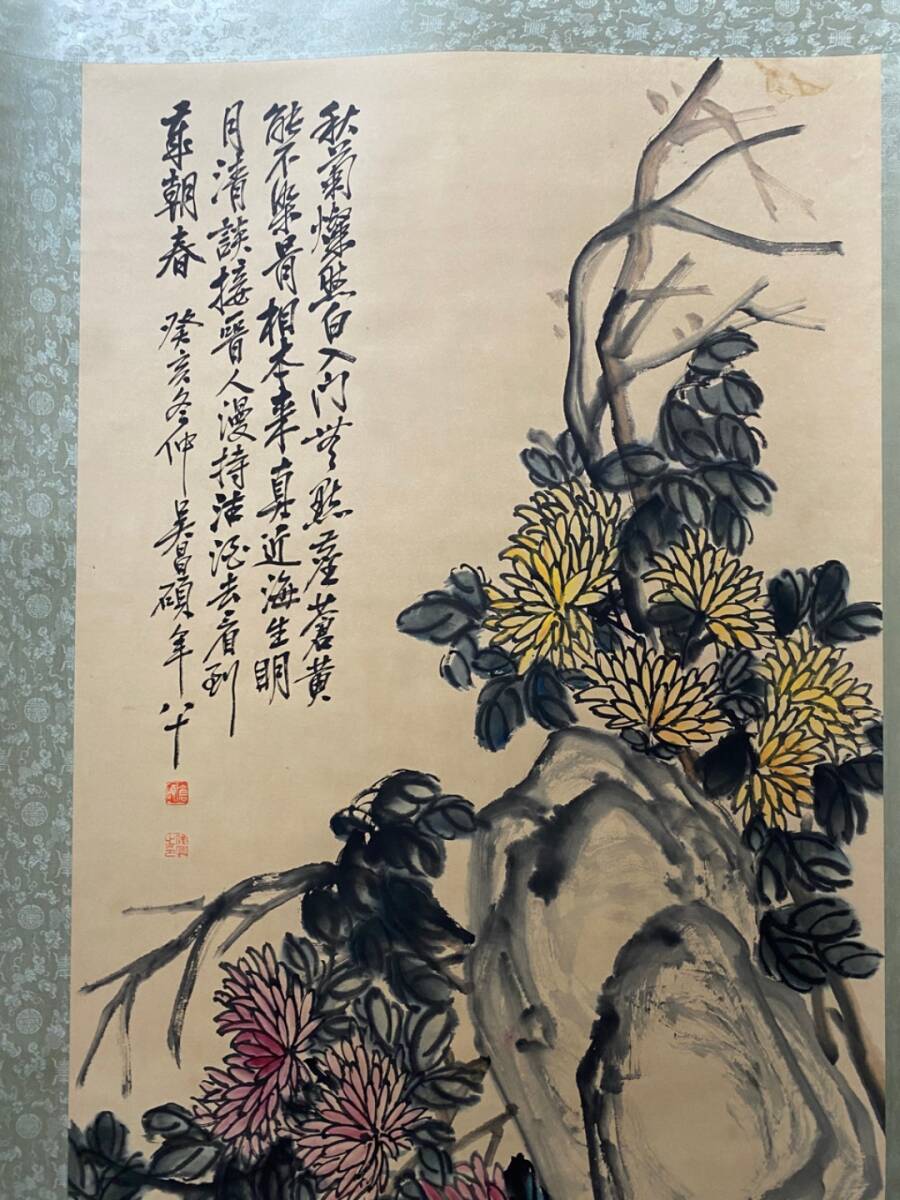 秋菊燦然白入門無點塵蒼黃
能不染骨相本來真近海生明
月清談接晉人漫持沽酒去看到
歲朝春 癸亥冬仲 吳昌碩年八十